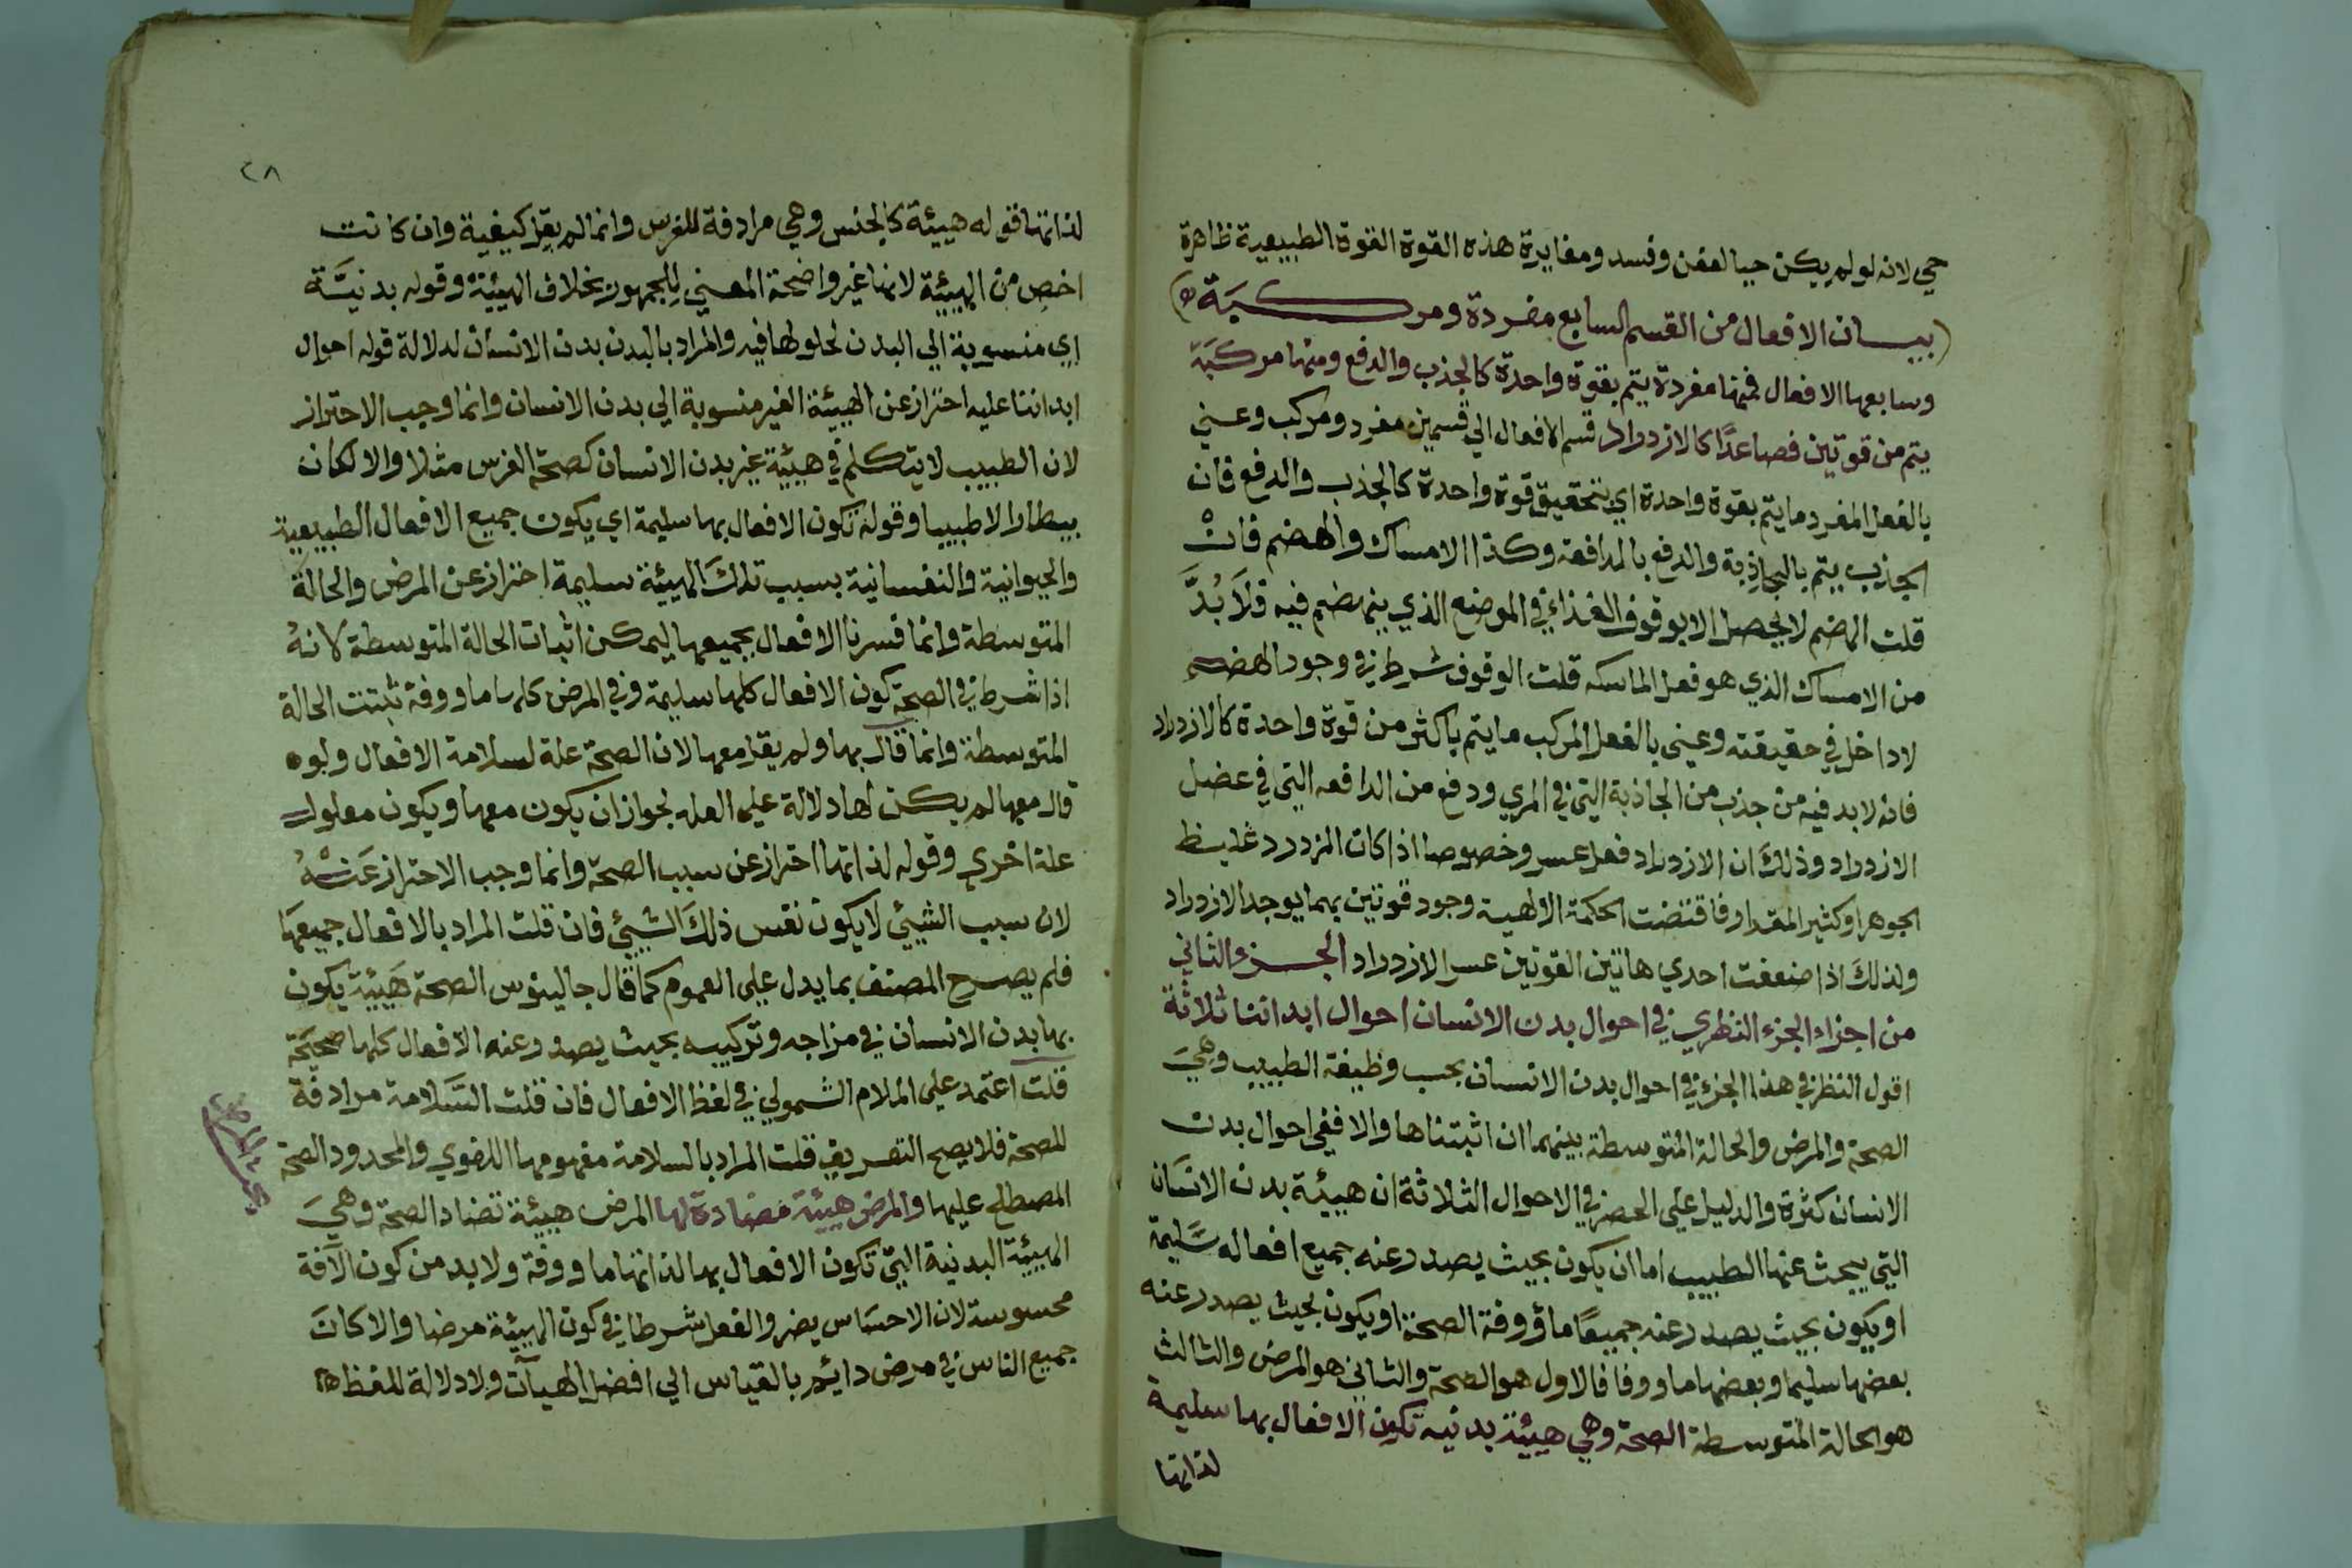 حي لانه لو لم يكن حيا لعفن وفسد ومغايرة هذه القوة القوة الطبيعية ظاهرة
(بيان الافعال من القسم السابع مفردة ومركبة)
وسابعها الافعال فمنها مفردة يتم بقوة واحدة كالجذب والدفع ومنها مركبة
يتم من قوتين فصاعدًا كالازدراد قسم الافعال الي قسمين مفرد ومركب وعني
بالفعل المفرد ما يتم بقوة واحدة اي بتحقيق قوة واحدة كالجذب والدفع فان
الجذب يتم بالجاذبة والدفع بالدافعة وكذا الامساك والهضم فانْ
قلت الهضم لا يحصل الا بوقوف الغذاء في الموضع الذي ينهضم فيه فلَا بُدَّ
من الامساك الذي هو فعل الماسكه قلت الوقوف شرط في وجود الهضم
لا داخل في حقيقته وعني بالفعل المركب ما يتم باكثر من قوة واحدة كالازدراد
فانه لا بد فيه من جذب من الجاذبة التي في المري ودفع من الدافعه التي في عضل
الازدراد وذلك ان الازدراد فعل عسر وخصوصا اذا كان المزدرد غليظ
الجوهر او كثير المقدار فاقتضت الحكمة الالهية وجود قوتين بهما يوجد الازدراد
ولذلك اذا ضعفت احدي هاتين القوتين عسر الازدراد الجزء الثاني
من اجزاء الجزء النظري في احوال بدن الانسان احوال ابداننا ثلاثة
اقول النظر في هذا الجزء في احوال بدن الانسان بحسب وظيفة الطبيب وهيَ
الصحة والمرض والحالة المتوسطة بينهما ان اثبتناها والا ففي احوال بدن
الانسان كثرة والدليل علي الحصر في الاحوال الثلاثة ان هيئة بدن الانسان
التي يبحث عنها الطبيب اما ان يكون بحيث يصدر عنه جميع افعاله سليمة
او يكون بحيث يصدر عنه جميعًا ماؤوفة الصحة او يكون بحيث يصدر عنه
بعضها سليما وبعضها ماووفا فالاول هو الصحة والثاني هو المرض والثالث
هو الحالة المتوسطة الصحة وهي هيئة بدنيه تكون الافعال بها سليمة
لذاتها
٢٨
لذاتها قوله هيئة كالجنس وهي مرادفة للعرض وانما لم يقل كيفية وان كانت
اخص من الهيئة لانها غير واضحة المعني للجمهور بخلاف الهيئة وقوله بدنيَّة
اي منسوبة الي البدن لحلولها فيه والمراد بالبدن بدن الانسان لدلالة قوله احوال
ابداننا عليه احتراز عن الهيئة الغير منسوبة الي بدن الانسان وانما وجب الاحتراز
لان الطبيب لا يتكلم في هيئة غير بدن الانسان كصحة الفرس مثلا والا لكان
بيطارا لا طبيبا وقوله تكون الافعال بها سليمة اي يكون جميع الافعال الطبيعية
والحيوانية والنفسانية بسبب تلك الهيئة سليمة احتراز عن المرض والحالة
المتوسطة وانما فسرنا الافعال بجميعها ليمكن اثبات الحالة المتوسطة لانهُ
اذا شرط في الصحة كون الافعال كلها سليمة وفي المرض كلها ماووفة ثبتت الحالة
المتوسطة وانما قال بها ولم يقل معها لان الصحة علة لسلامة الافعال ولو
قال معها لم يكن لها دلالة علي العله لجواز ان يكون معها ويكون معلول
علة اخري وقوله لذاتها احتراز عن سبب الصحة وانما وجب الاحتراز عَنْهُ
لان سبب الشيئي لا يكون نفس ذلك الشيئي فان قلت المراد بالافعال جميعهَا
فلم يصرح المصنف بما يدل علي العموم كما قال جالينوس الصحة هَيئة يكون
بها بدن الانسان في مزاجه وتركيبه بحيث يصدر عنه الافعال كلها صحيحة
قلت اعتمد علي اللام الشمولي في لفظ الافعال فان قلت السَّلامة مرادفة
للصحة فلا يصح التعريف قلت المراد بالسلامة مفهومها اللغوي والمحدود الصحة
المصطلح عليها والمرض هيئة مضادة لها المرض هيئة تضاد الصحة وهيَ
الهيئة البدنية التي تكون الافعال بها لذاتها ماووفة ولا بد من كون الآفة
محسوسة لان الاحسَاس يضر والفعل شرطا في كون الهيئة مرضا والا كانَ
جميع الناس في مرض دائم بالقياس الي افضل الهيآت ولا دلالة للفظ